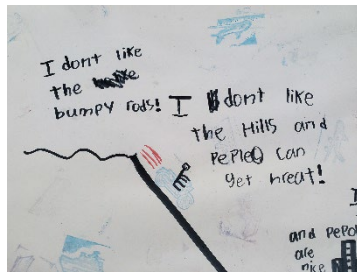 I dont like
the
bumpy rods!
I dont like
the Hills and
PePleO can
get hreat!
I
and PePol
are
nice